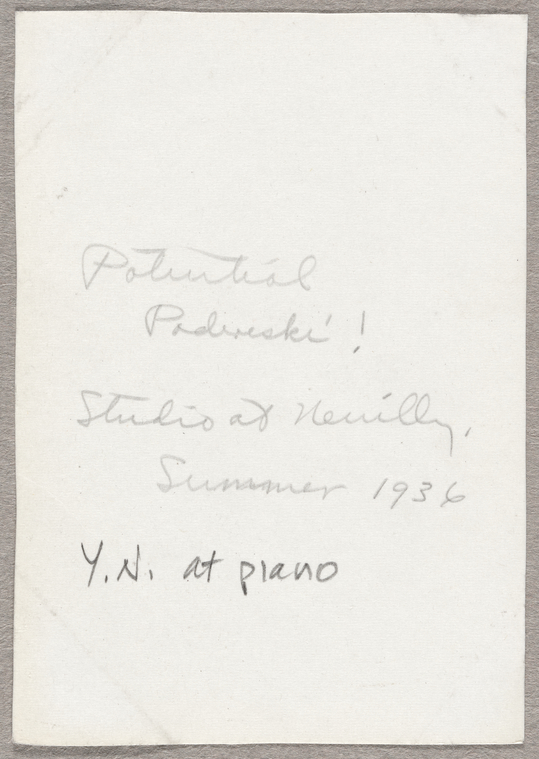 Potential
Padereski!
Studio at Neuilly,
Summer 1936
Y.N. at piano